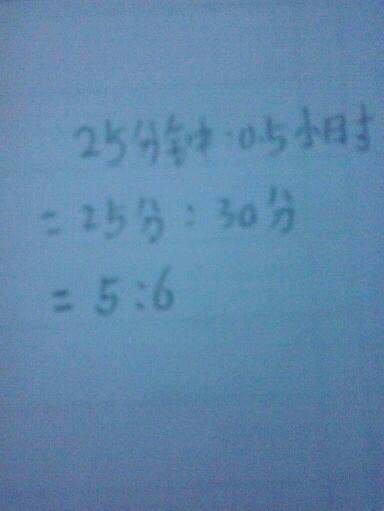 25分钟:0.5小时
=25分:30分
=5:6